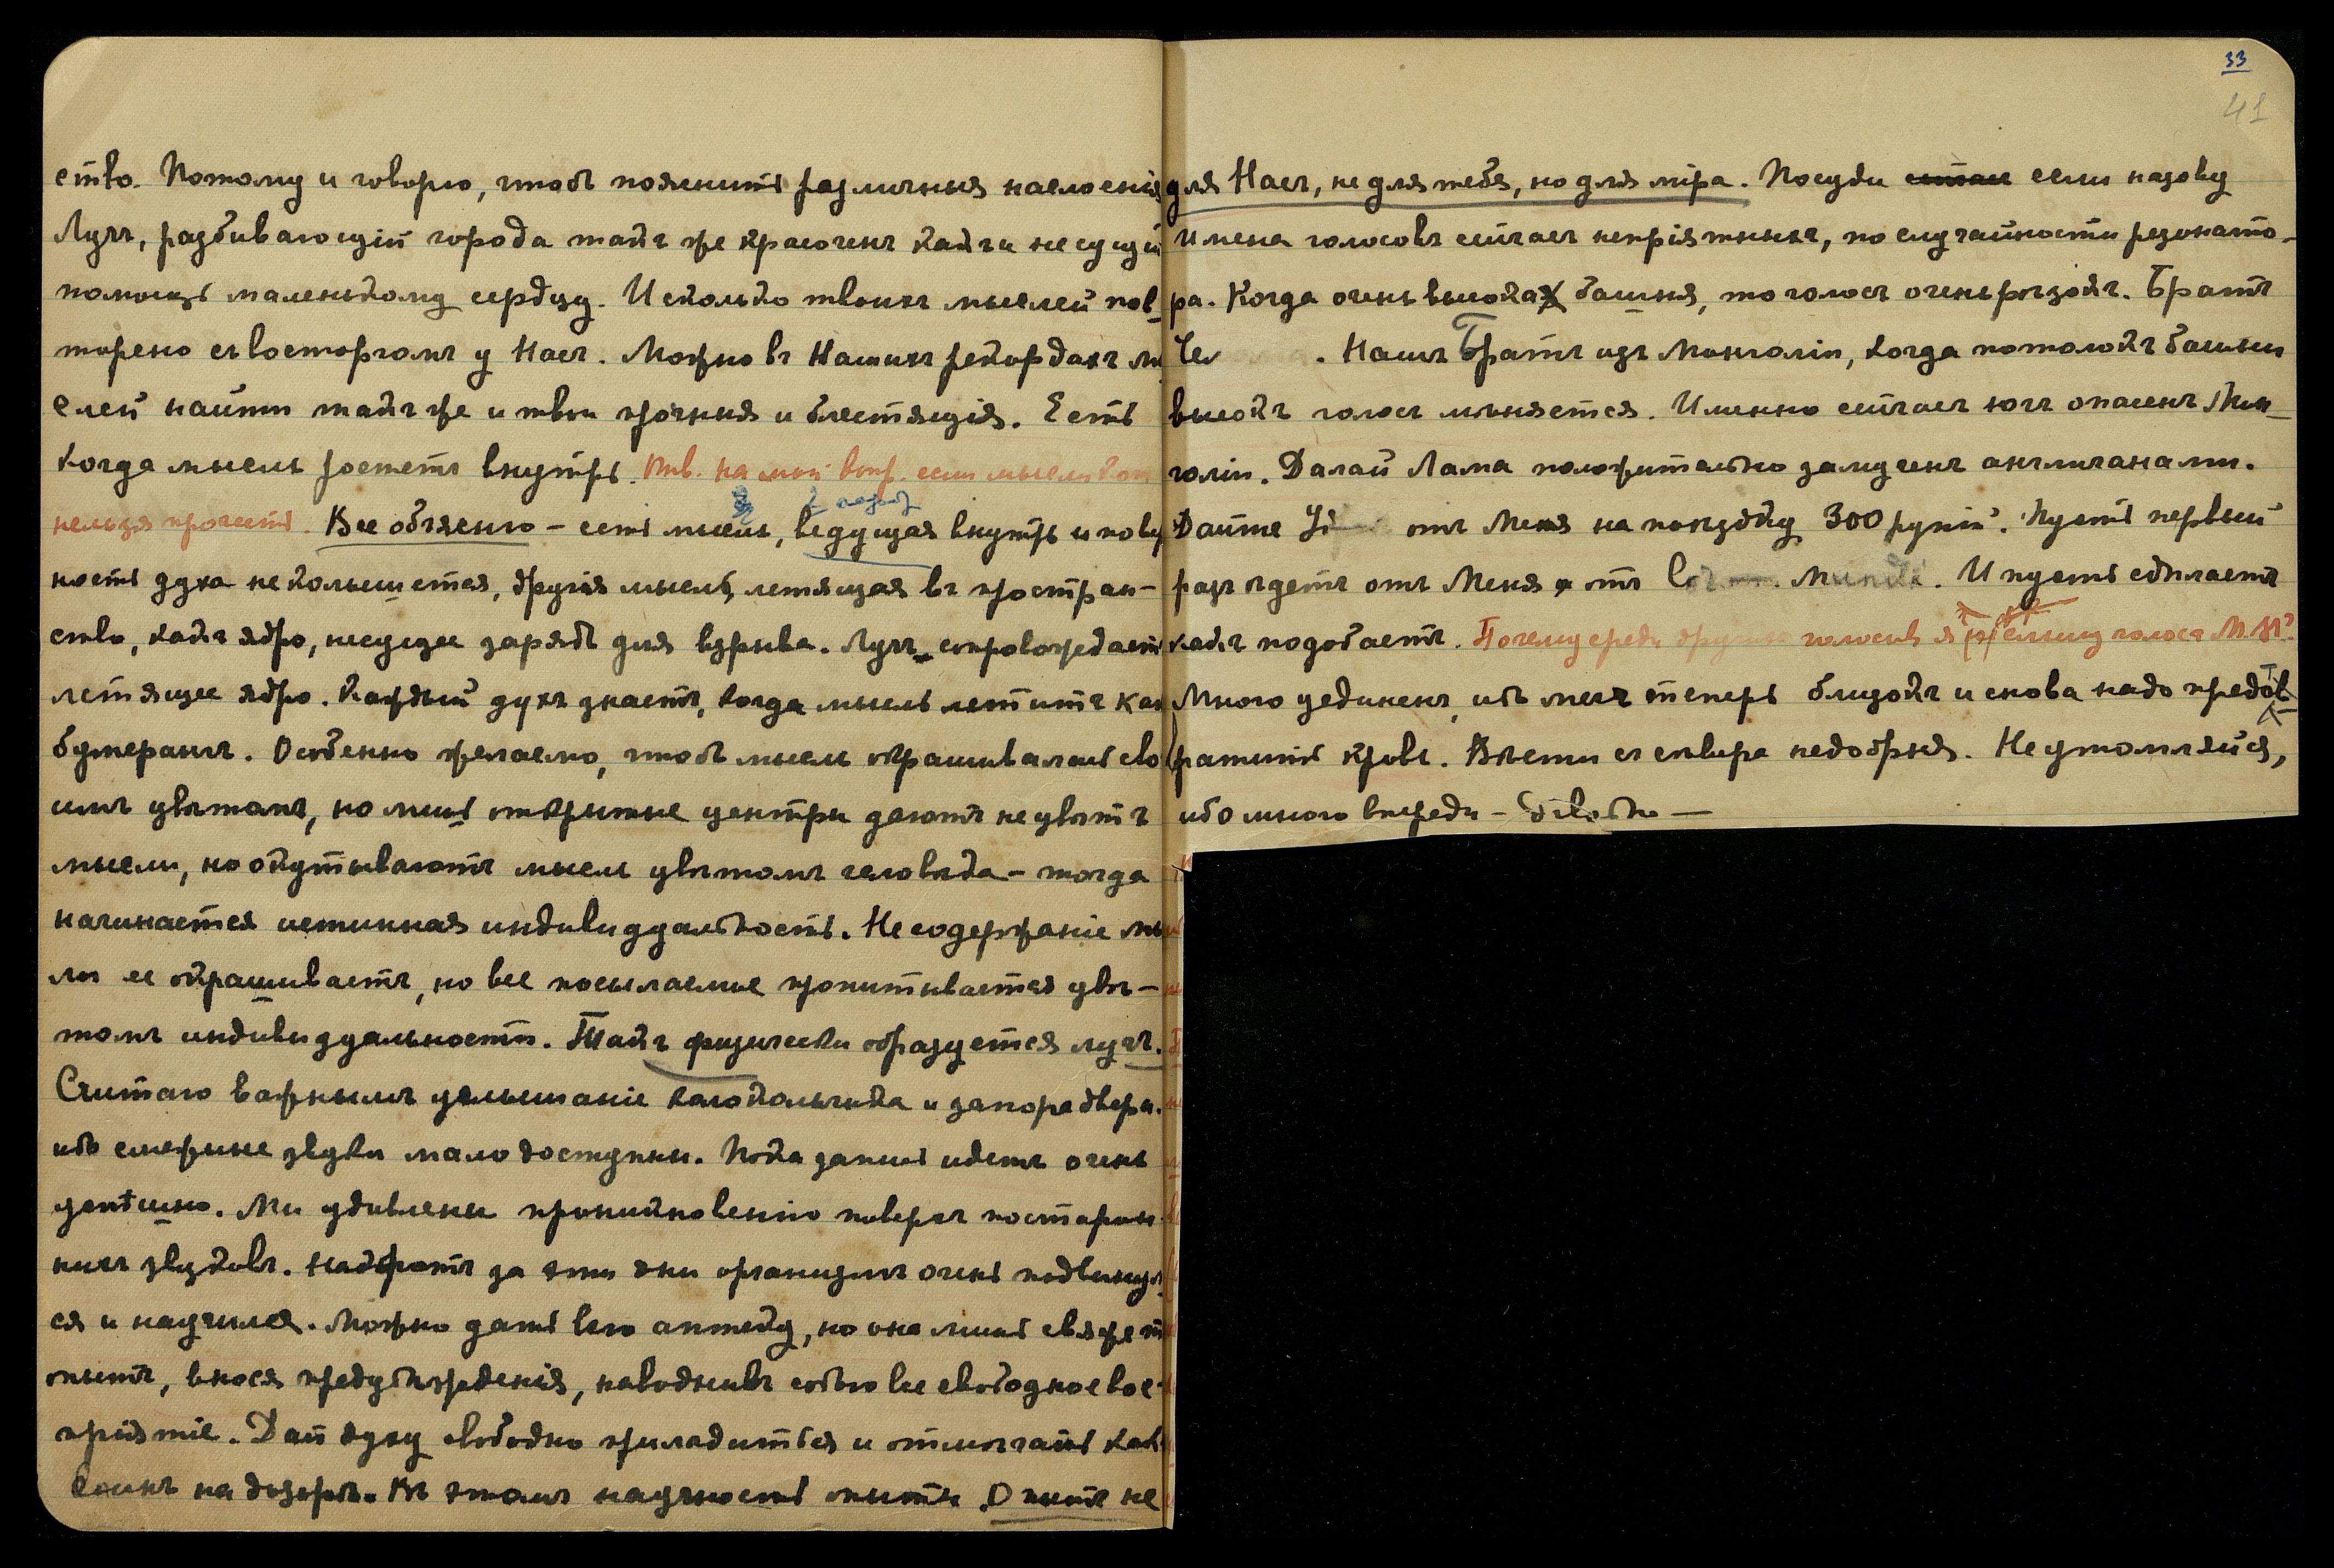 ство. Потому и говорю, чтобъ пояснить различныя наслоенія
Лучъ, разбивающій города такъ же красоченъ какъ и несущій
помощь маленькому сердцу. И сколько твоихъ мыслей пов-
торено съ восторгомъ у Насъ. Можно въ Нашихъ рекордахъ мы
слей найти такъ же и твои прочныя и блестящія. Есть
когда мысль ростетъ внутрь. Отв. на мой вопр. если мысли
нельзя прочесть. Все объясню – есть мысль, ведущая внутрь и пове
ность духа не колышется, другія мысль, летящая въ простран-
ство, какъ ядро, несущее зарядъ для взрыва. Лучъ сопровождает
летящее ядро. Каждый духъ знаетъ, когда мысль летитъ как
бумерангъ. Особенно желаемо, чтобъ мысль окрашивалась сво
имъ цвѣтомъ, но лишь открытые центры даютъ не цвѣтъ
мысли, но окутываютъ мысль цвѣтомъ человѣка – тогда
начинается истинная индивидуальность. Не содержаніе мы
ли ее окрашиваетъ, но все посылаемые пропитывается цвѣ-
томъ индивидуальности. Такъ физически образуется лучъ.
Считаю важнымъ услышаніе колокольчика и запора двери.
ибо смежные звуки мало доступны. Пока запись идетъ очень
успѣшно. Мы удивлены проникновенію поверхъ посторон-
нихъ звуковъ. За эти дни организмъ очень подвинул
ся и научился. Можно дать всю аптеку, но она лишь свяжет
опытъ, внося предубѣжденія, наводнивъ собою все свободное вос-
пріятіе. Дай духу свободно приладиться и отмѣчать как
воинъ на дозорѣ. Въ этомъ научность опыта. Опытъ не
33
41
для Насъ, не для тебя, но для міра. Посуди если назову
имена голосовъ сейчасъ непріятныхъ, по случайности резонато-
ра. Когда очень высока башня, то голосъ очень рѣзокъ. Братъ
Че . Нашъ Братъ изъ Монголіи, когда потолокъ башни
высокъ голосъ мѣняется. Именно сейчасъ югъ опасенъ Мон-
голіи. Далай Лама положительно замученъ англичанами.
Дайте отъ Меня на поѣздку 300 рупій. Пусть первый
разъ ѣдетъ отъ Меня отъ Mundi. И пусть сдѣлаетъ
какъ подобаетъ. Почему среди другихъ голосовъ я не слышу голоса М. М.?
Много уединенъ, ибо мечъ теперь близокъ и снова надо предов-
ратить кровь. Вѣсти съ сѣвера недобрыя. Не утомляйся,
ибо много впереди –